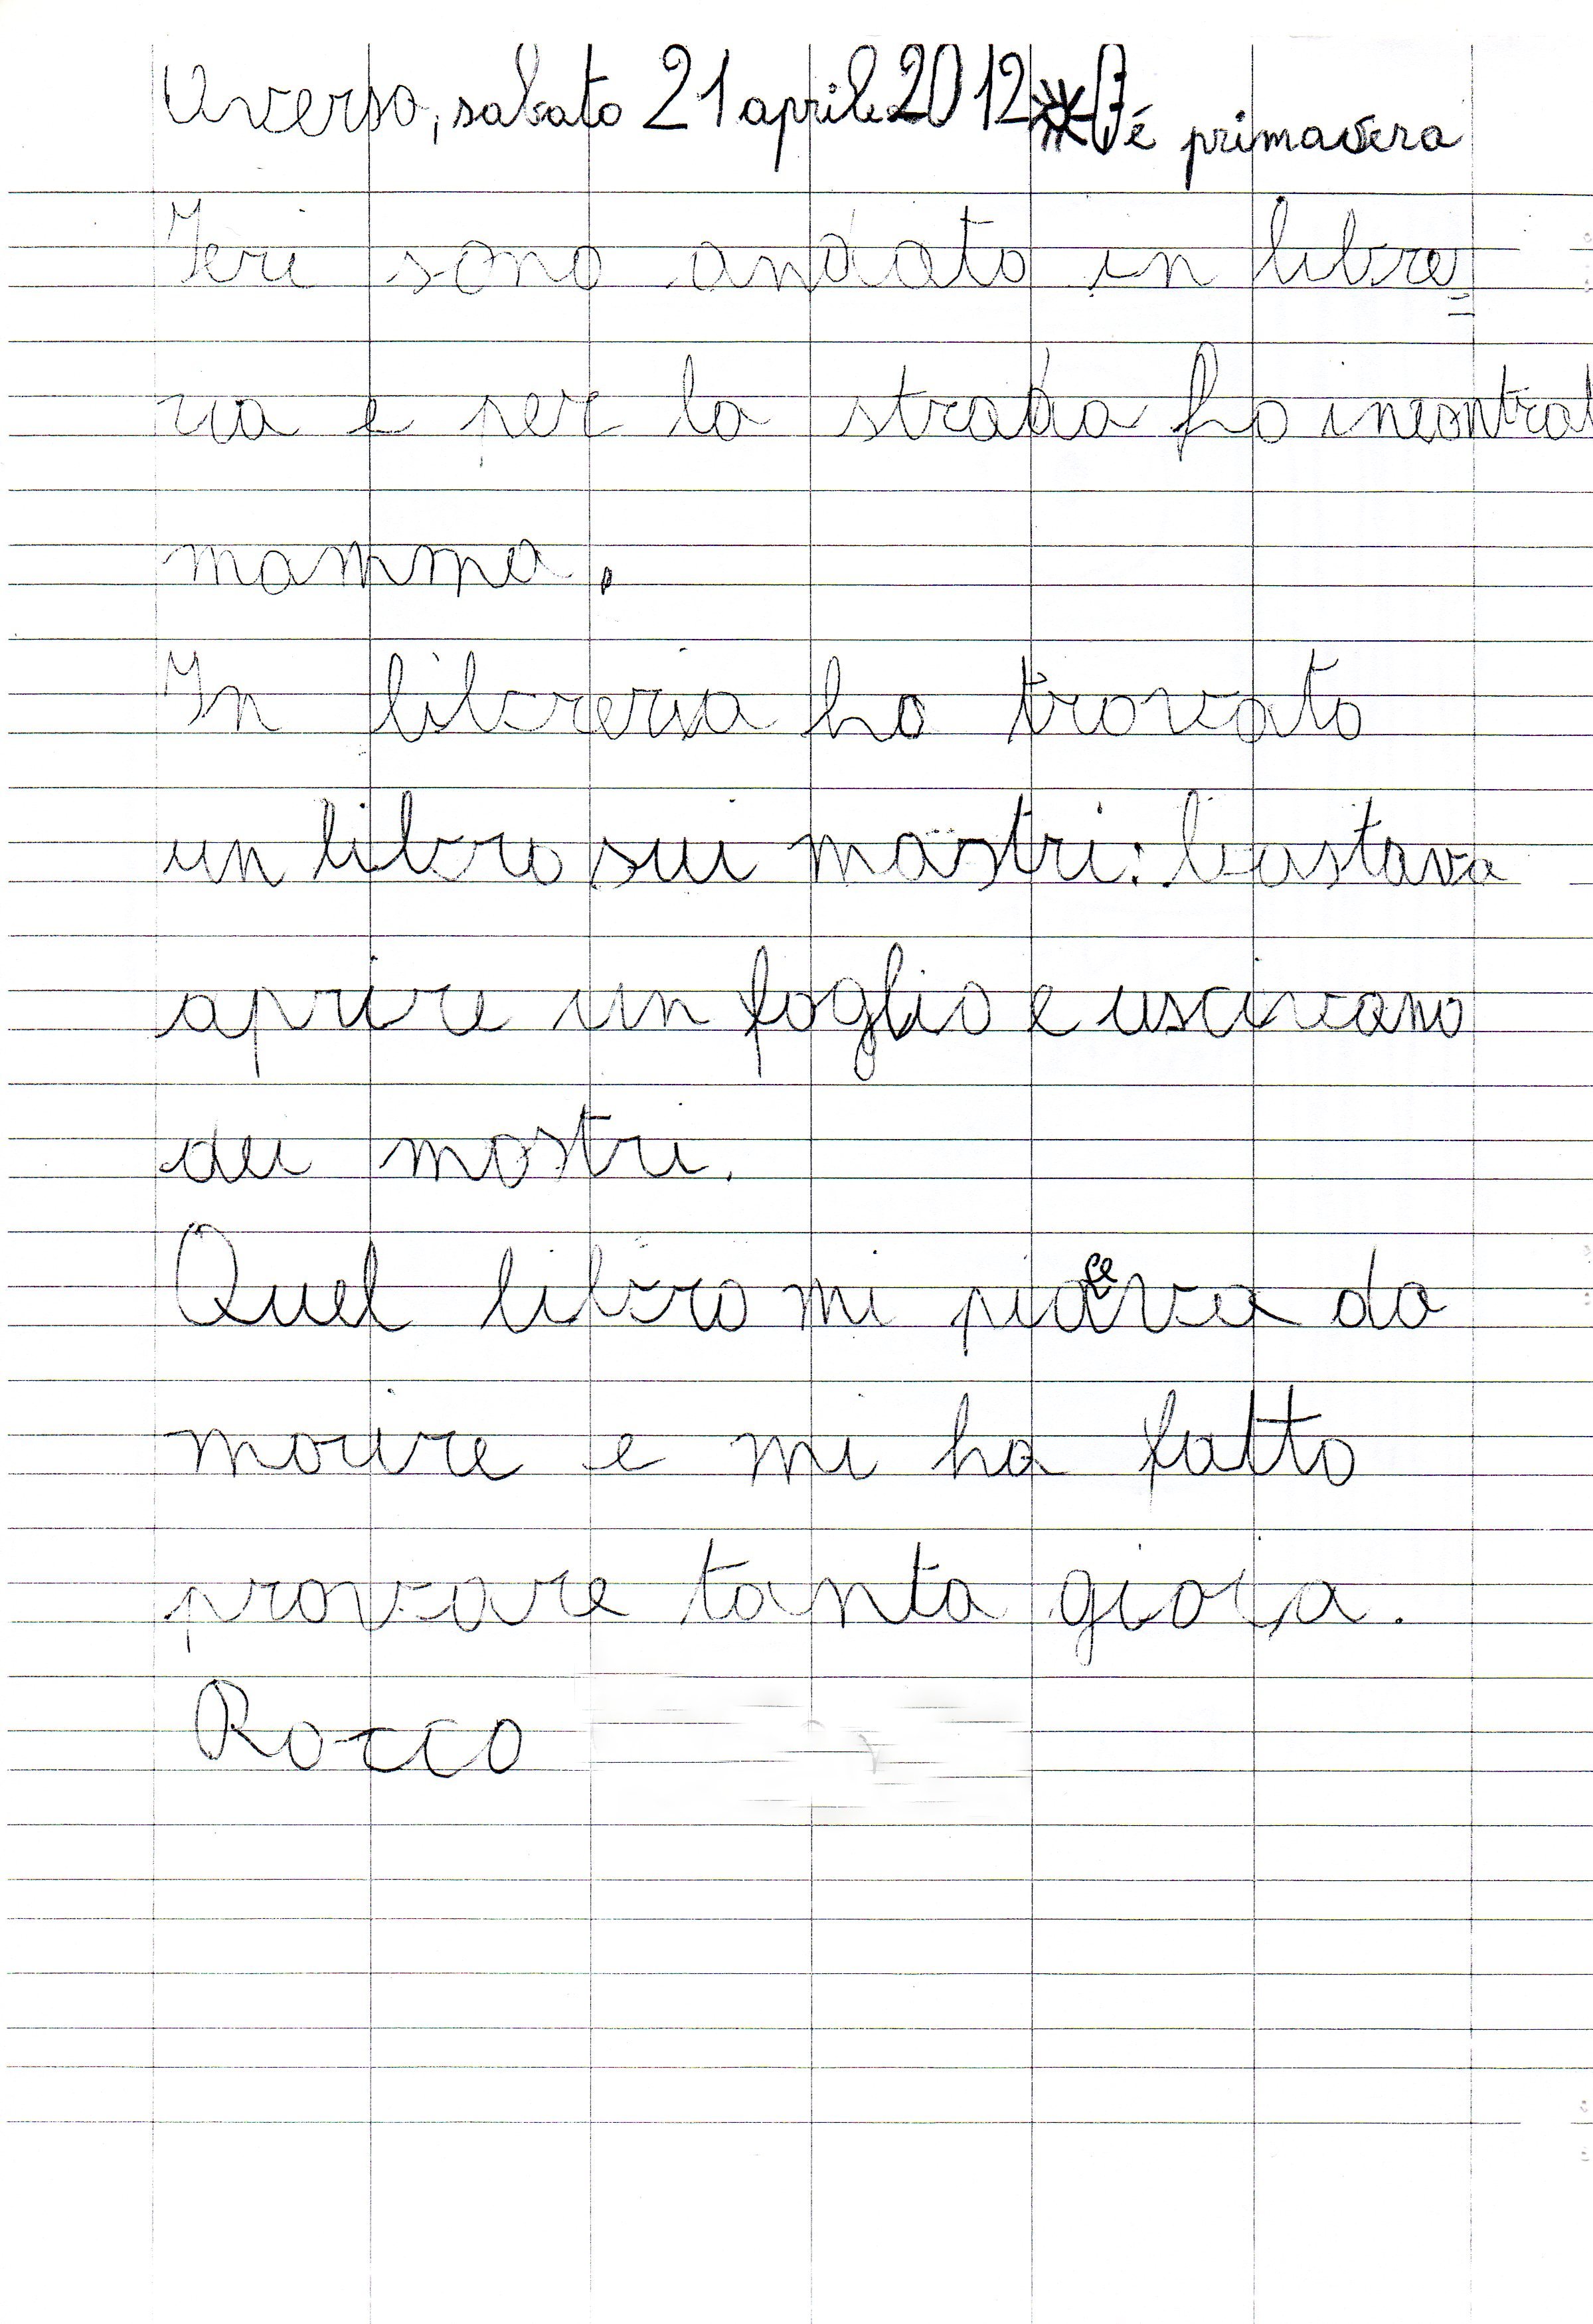 Aversa, sabato 21 aprile 2012 é primavera
Ieri sono andato in libre=
ria e per la strada ho incontrat
mamma.
In libreria ho trovato
un libro sui mostri: bastava
aprire un foglio e uscivano
dei mostri.
Quel libro mi piaceva da
morire e mi ha fatto
provare tanta gioia.
Rocco